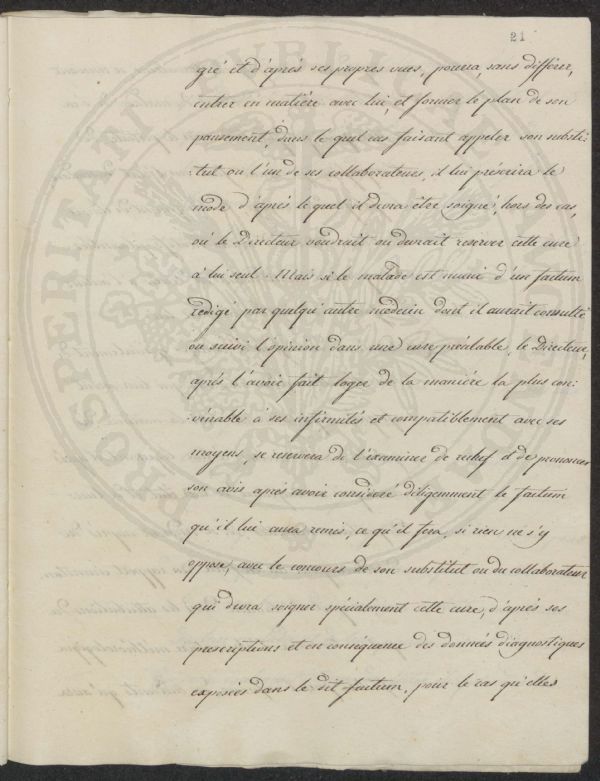 21
gré et d'après ses propres vues, pourra, sans différer,
entrer en matiére avec lui, et former le plan de son
pansement, dans le quel cas faisant appeler son substi:
:tut ou l'un de ses collaborateurs, il lui préscrira le
mode d'après le quel il devra être soigné, hors des cas,
où le Directeur voudrait ou devrait reserver cette cure
à lui seul. Mais si le malade est muni d'un factum
redigé par quelqu'autre médecin dont il aurait consulté
ou suivi l'opinion dans une cure préalable, le Directeur,
aprés l'avoir fait loger de la maniére la plus con:
:vénable à ses infirmités et compatiblement avec ses
moyens, se reservera de l'examiner de rechef et de prononcer
son avis après avoir consideré diligemment le factum
qu'il lui aura remis, ce qu'il fera, si rien ne s'y
oppose, avec le concours de son substitut ou du collaborateur
qui devra soigner spécialement cette cure, d'après ses
prescriptions et en conséquence des données diagnostiques
exposées dans le dit factum, pour le cas qu'elles
PROSPERITATI PUBLICAE